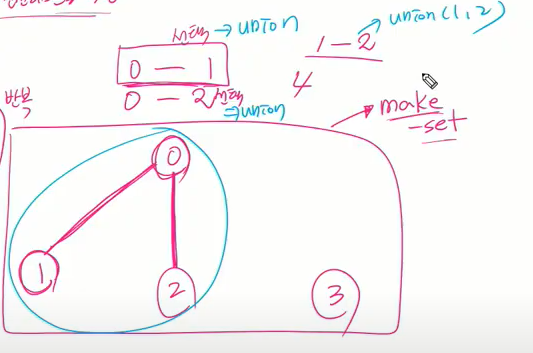 선택 → union
0 — 1
0 — 2 선택
⇒ union
1 — 2 → union(1,2)
4
반복
make
-set
0
1
2
3